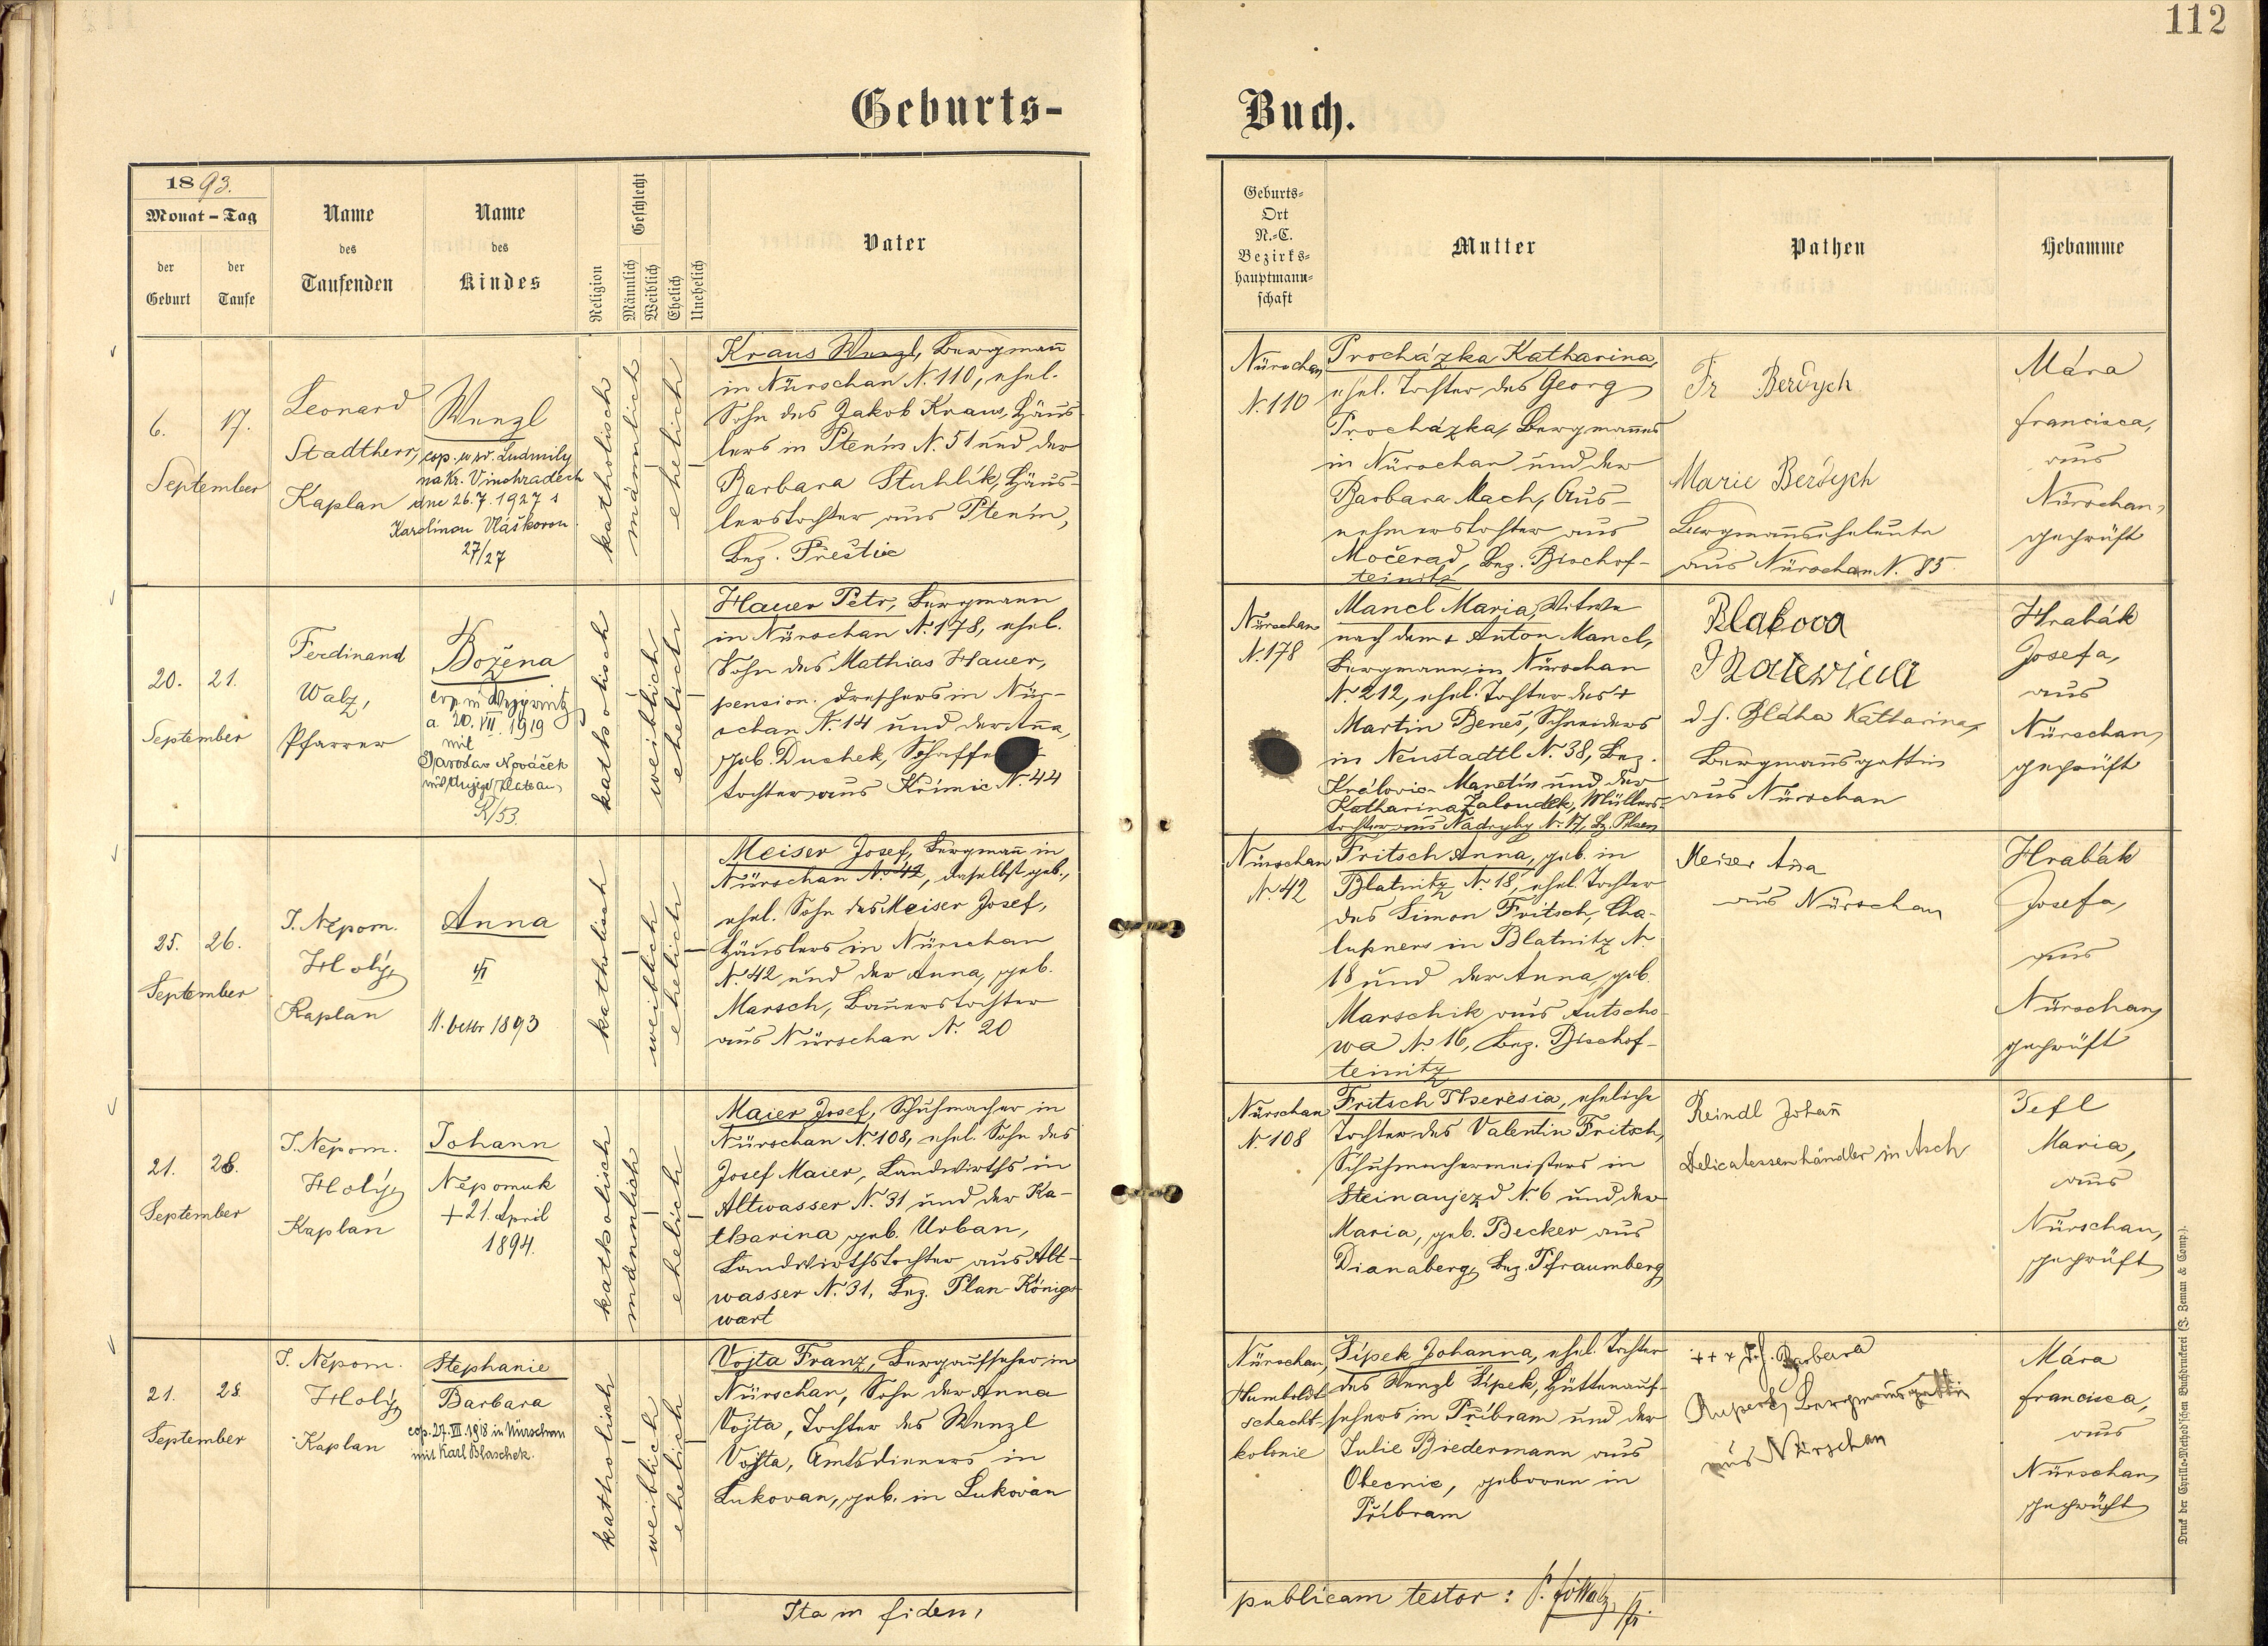 112
Geburts-
Buch.
1893.
Monat – Tag
der Geburt
der Taufe
Name des Taufenden
Name des Kindes
Religion
Geschlecht
Männlich
Weiblich
Ehelich
Unehelich
Vater
Geburts-
Ort
N.-C.
Bezirks-
hauptmann-
schaft
Mutter
Pathen
Hebamme
6. 17.
September
Leonard
Stadtherr,
Kaplan
Wenzl
cop. u sv. Ludmily
na Kr. Vinohradech
dne 26.7.1927 s
Karolinou Vláškovou
27/27
katholisch
männlich
ehelich
Kraus Wenzl, Bergmann
in Nürschan N. 110, ehel.
Sohn des Jakob Kraus, Häus-
lers in Ptenín N. 51 und der
Barbara Stuhlík, Häus-
lerstochter aus Ptenín,
Bez. Přestic
Nürschan
N. 110
Procházka Katharina,
ehel. Tochter des Georg
Procházka, Bergmannes
in Nürschan und der
Barbara Mach, Aus-
nehmerstochter aus
Močerad, Bez. Bischof-
teinitz
Fr Berdych
Marie Berdych
Bergmannseheleute
aus Nürschan N. 85
Mára
Francisca,
aus
Nürschan,
geprüft
20. 21.
September
Ferdinand
Walz,
Pfarrer
Božena
a 20. VII. 1919
mit
Jaroslav Nováček
R/53.
katholisch
weiblich
ehelich
Hauer Petr, Bergmann
in Nürschan N. 178, ehel.
Sohn des Mathias Hauer,
pension. Dreschers in Nür-
schan N. 14 und der Anna,
geb. Duchek, Schaffe
tochter aus Křimic N. 44
Nürschan
N. 178
Mancl Maria, Witwe
nach dem + Anton Mancl,
Bergmann in Nürschan
N. 212, ehel. Tochter des +
Martin Beneš, Schneiders
in Neustadtl N. 38, Bez.
Královic-Manetín und der
Katharina Žaloudek, Müllers-
tochter aus Nadryby N. 17, Bz. Pilsen
Blahova
Katerina
d. h. Bláha Katharina,
Bergmannsgattin
aus Nürschan
Hrabák
Josefa,
aus
Nürschan,
geprüft
25. 26.
September
J. Nepom.
Holý,
Kaplan
Anna
11. October 1893
katholisch
weiblich
ehelich
Meiser Josef, Bergmann in
Nürschan N. 42, daselbst geb.,
ehel. Sohn des Meiser Josef,
Häuslers in Nürschan
N. 42 und der Anna, geb.
Marsch, Bauerstochter
aus Nürschan N. 20
Nürschan
N. 42
Fritsch Anna, geb. in
Blatnitz N. 18, ehel. Tochter
des Simon Fritsch, Cha-
lupners in Blatnitz N.
18 und der Anna, geb.
Marschik aus Autscho-
wa N. 16, Bez. Bischof-
teinitz
Meiser Anna
aus Nürschan
Hrabák
Josefa,
aus
Nürschan,
geprüft
21. 28.
September
J. Nepom.
Holý,
Kaplan
Johann
Nepomuk
+ 21. April
1894.
katholisch
männlich
ehelich
Maier Josef, Schuhmacher in
Nürschan N. 108, ehel. Sohn des
Josef Maier, Landwirths in
Altwasser N. 31 und der Ka-
tharina, geb. Urban,
Landwirthstochter aus Alt-
wasser N. 31, Bez. Plan-Königs-
wart
Nürschan
N. 108
Fritsch Theresia, eheliche
Tochter des Valentin Fritsch,
Schuhmachermeisters in
Steinaujezd N. 6 und der
Maria, geb. Becker aus
Dianaberg, Bez. Pfraumberg
Reindl Johann
Delicatessenhändler in Asch
Tefl
Maria,
aus
Nürschan,
geprüft
21. 28.
September
J. Nepom.
Holý,
Kaplan
Stephanie
Barbara
cop. 27. VII. 1918 in Nürschan
mit Karl Blaschek.
katholisch
weiblich
ehelich
Vojta Franz, Bergaufseher in
Nürschan, Sohn der Anna
Vojta, Tochter des Wenzl
Vojta, Amtsdieners in
Lukovan, geb. in Lukovan
Nürschan,
Humboldt-
schacht-
kolonie
Šípek Johanna, ehel. Tochter
des Wenzl Šípek, Hüttenauf-
sehers in Příbram und der
Julie Biedermann aus
Obecnic, geboren in
Příbram
+++ d. h. Barbara
Rupert, Bergmannsgattin
aus Nürschan
Mára
Francisca,
aus
Nürschan,
geprüft
Ita in fidem
publicam testor:
Druck der Cyrillo-Method'schen Buchdruckerei (J. Zeman & Comp.).